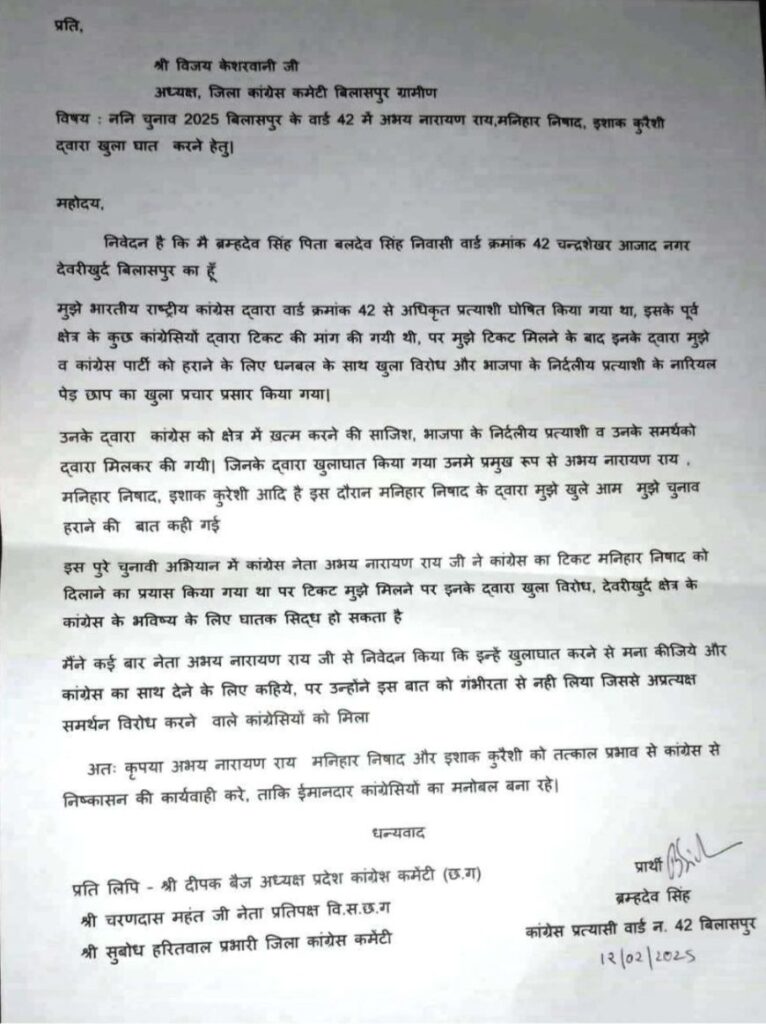 प्रति,
श्री विजय केशरवानी जी
अध्यक्ष, जिला कांग्रेस कमेटी बिलासपुर ग्रामीण
विषय : ननि चुनाव 2025 बिलासपुर के वार्ड 42 में अभय नारायण राय,मनिहार निषाद, इशाक कुरैशी
द्वारा खुला घात करने हेतु|
महोदय,
निवेदन है कि मै ब्रम्हदेव सिंह पिता बलदेव सिंह निवासी वार्ड क्रमांक 42 चन्द्रशेखर आजाद नगर
देवरीखुर्द बिलासपुर का हूँ
मुझे भारतीय राष्ट्रीय कांग्रेस द्वारा वार्ड क्रमांक 42 से अधिकृत प्रत्याशी घोषित किया गया था, इसके पूर्व
क्षेत्र के कुछ कांग्रेसियों द्वारा टिकट की मांग की गयी थी, पर मुझे टिकट मिलने के बाद इनके द्वारा मुझे
व कांग्रेस पार्टी को हराने के लिए धनबल के साथ खुला विरोध और भाजपा के निर्दलीय प्रत्याशी के नारियल
पेड़ छाप का खुला प्रचार प्रसार किया गया|
उनके द्वारा कांग्रेस को क्षेत्र में ख़त्म करने की साजिश, भाजपा के निर्दलीय प्रत्याशी व उनके समर्थको
द्वारा मिलकर की गयी| जिनके द्वारा खुलाघात किया गया उनमे प्रमुख रूप से अभय नारायण राय ,
मनिहार निषाद, इशाक कुरेशी आदि है इस दौरान मनिहार निषाद के द्वारा मुझे खुले आम मुझे चुनाव
हराने की बात कही गई
इस पुरे चुनावी अभियान में कांग्रेस नेता अभय नारायण राय जी ने कांग्रेस का टिकट मनिहार निषाद को
दिलाने का प्रयास किया गया था पर टिकट मुझे मिलने पर इनके द्वारा खुला विरोध, देवरीखुर्द क्षेत्र के
कांग्रेस के भविष्य के लिए घातक सिद्ध हो सकता है
मैंने कई बार नेता अभय नारायण राय जी से निवेदन किया कि इन्हें खुलाघात करने से मना कीजिये और
कांग्रेस का साथ देने के लिए कहिये, पर उन्होंने इस बात को गंभीरता से नही लिया जिससे अप्रत्यक्ष
समर्थन विरोध करने वाले कांग्रेसियों को मिला
अतः कृपया अभय नारायण राय मनिहार निषाद और इशाक कुरैशी को तत्काल प्रभाव से कांग्रेस से
निष्कासन की कार्यवाही करे, ताकि ईमानदार कांग्रेसियों का मनोबल बना रहे|
धन्यवाद
प्रति लिपि - श्री दीपक बैज अध्यक्ष प्रदेश कांग्रेश कमेंटी (छ.ग)
श्री चरणदास महंत जी नेता प्रतिपक्ष वि.स.छ.ग
श्री सुबोध हरितवाल प्रभारी जिला कांग्रेस कमेंटी
प्रार्थी
ब्रम्हदेव सिंह
कांग्रेस प्रत्यासी वार्ड न. 42 बिलासपुर
12/02/2025